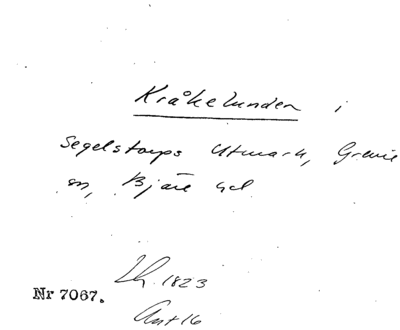 Kråkelunden i
Segelstorps Utmark, Grevie
sn, Bjäre hd.
Lh. 1823
Nr 7067.
Ant 16